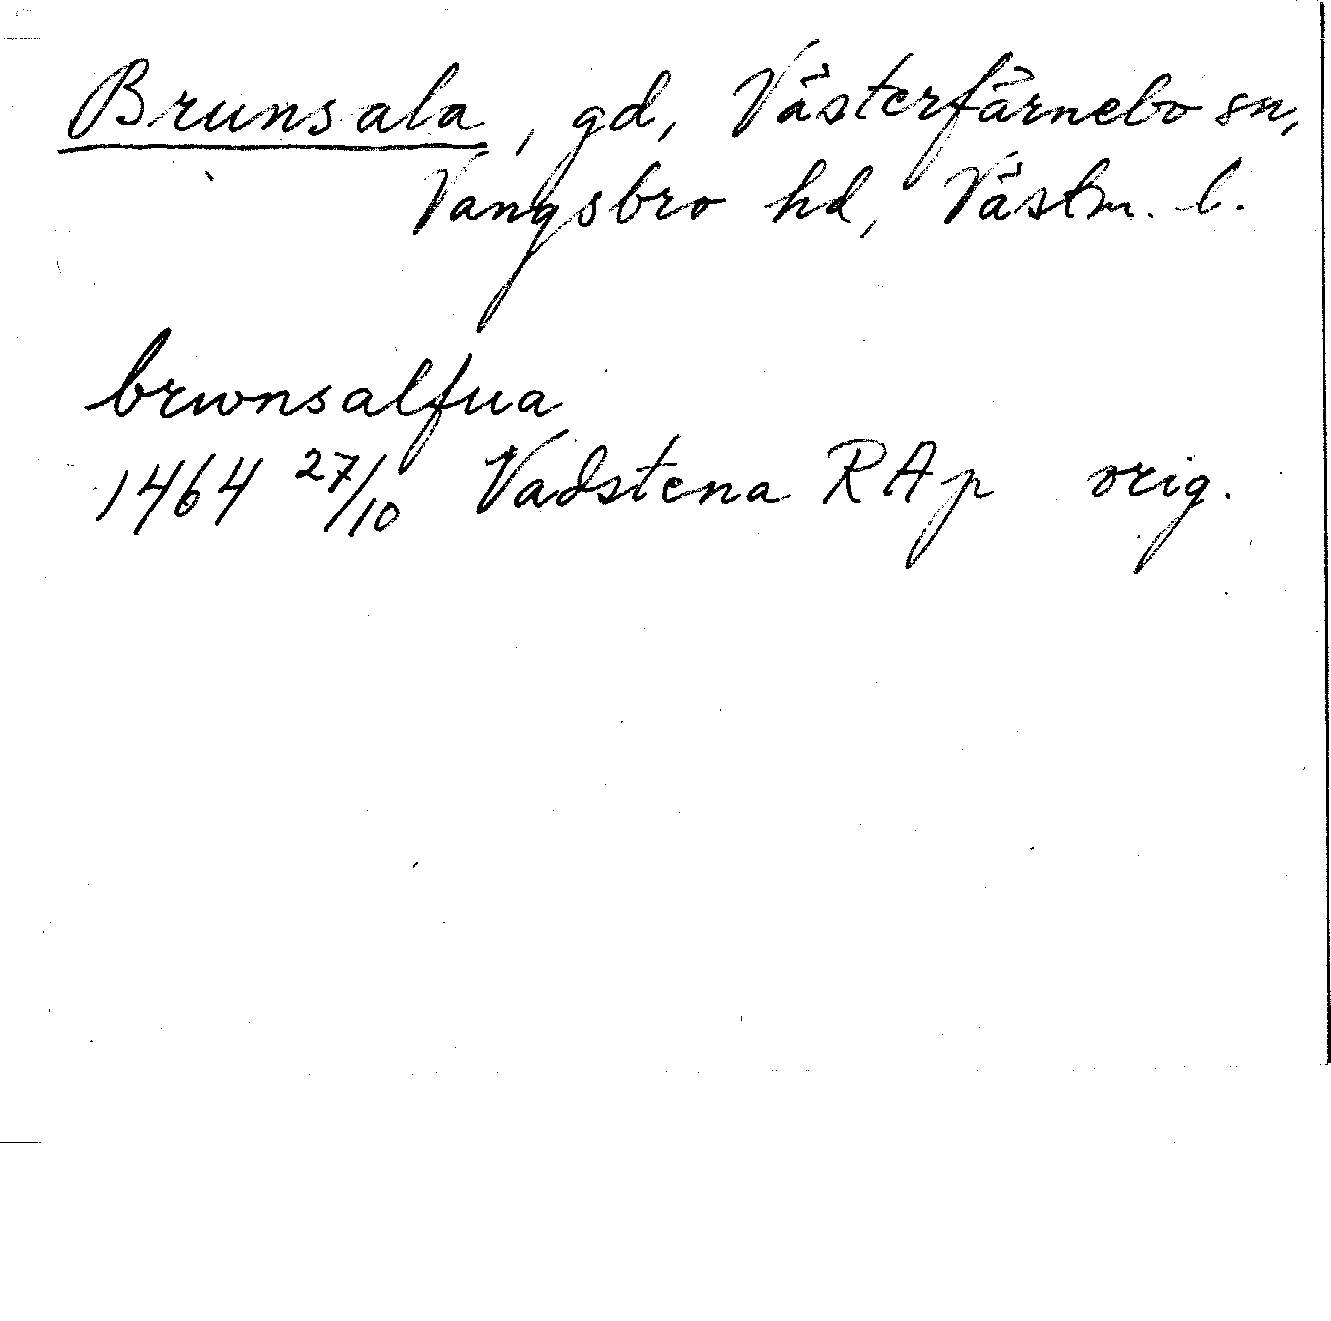 Brunsala, gd, Västerfärnebo sn,
Vangsbro hd, Västm. l.
brwnsalfua
1464 27/10 Vadstena RAp orig.